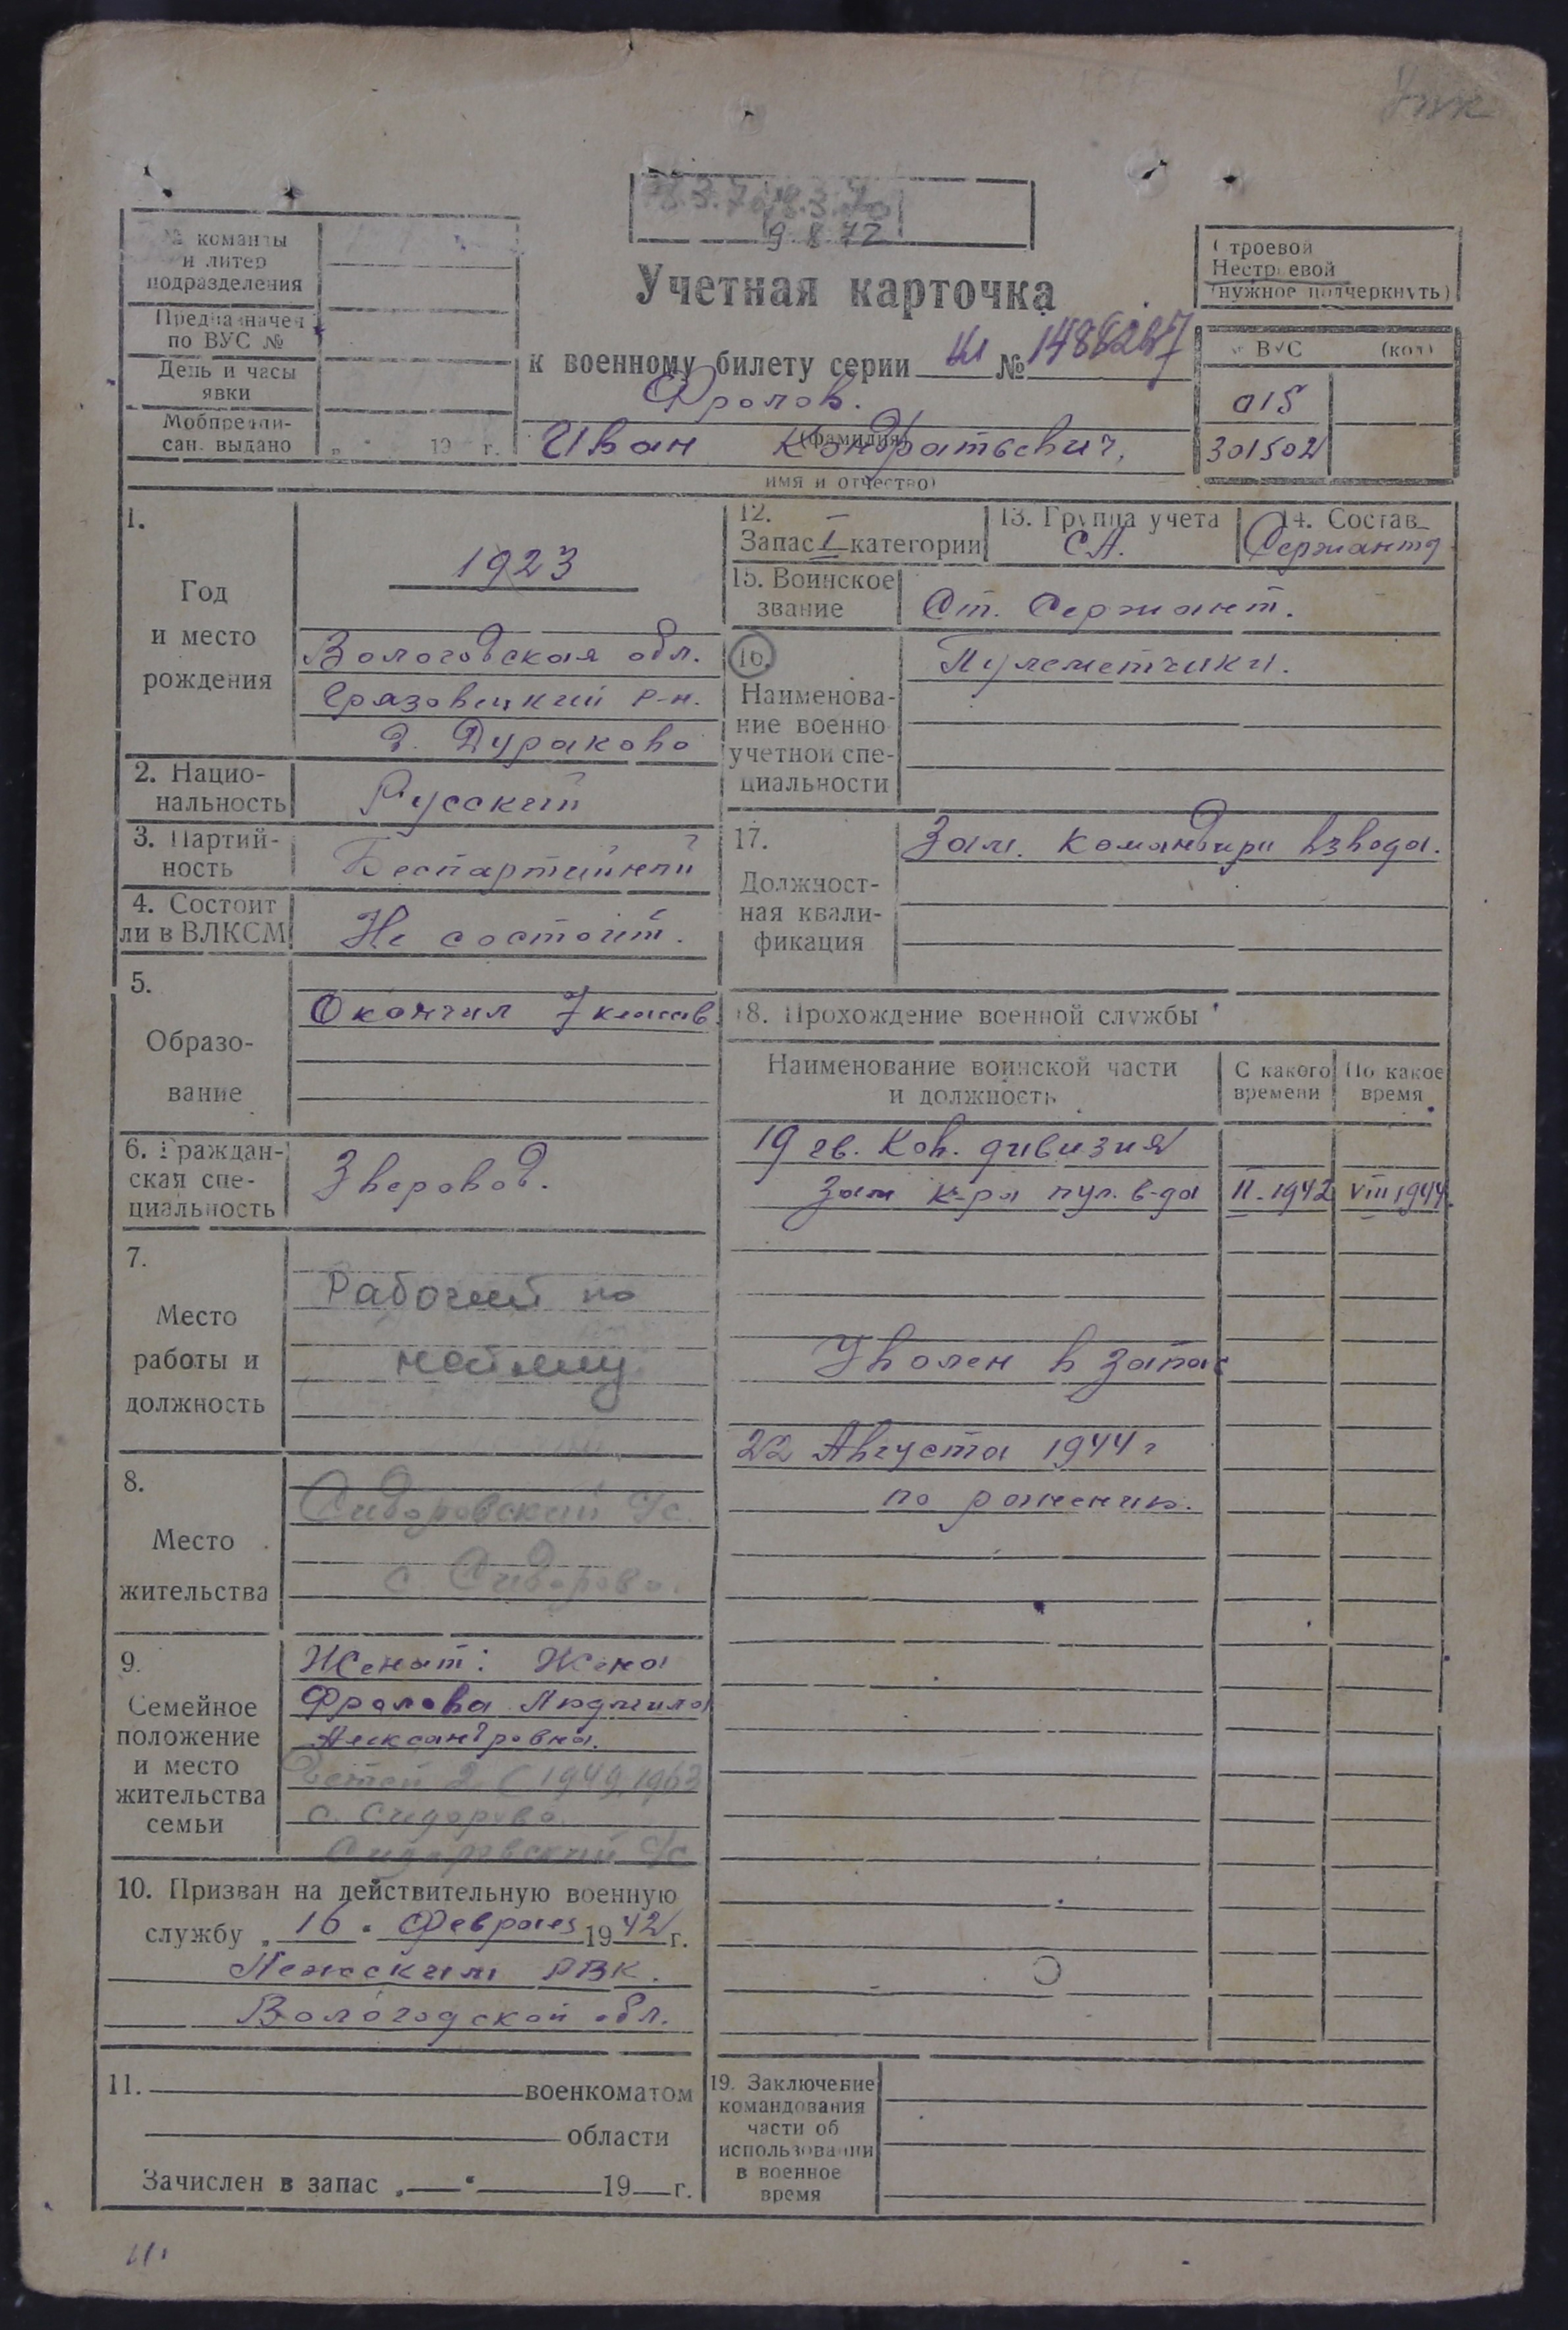 9.8.72
№ команды
и литер
подразделения
Предназначен
по ВУС №
День и часы
явки
Мобпредпи-
сан. выдано
19 г.
Учетная карточка
к военному билету серии №
Фролов.
(фамилия)
Иван Кондратьевич,
имя и отчество)
Строевой
Нестроевой
(нужное подчеркнуть)
№ ВУС (код)
015
301502
1.
Год
и место
рождения
1923
Вологодская обл.
Грязовецкий р-н.
д. Дураково
2. Нацио-
нальность
Русский
3. Партий-
ность
Беспартийный
4. Состоит
ли в ВЛКСМ
Не состоит.
5.
Образо-
вание
Окончил 7 классов
6. Граждан-
ская спе-
циальность
Зверовод.
7.
Место
работы и
должность
Рабочий по
найму
8.
Место
жительства
Сидоровский с/с.
с. Сидорово.
9.
Семейное
положение
и место
жительства
семьи
Женат: Жена
Фролова Людмила
Александровна.
Детей 2 (1949, 1963
с. Сидорово.
Сидоровский с/с
10. Призван на действительную военную
службу 16 Февраля 1942 г.
РВК.
Вологодской обл.
11. военкоматом
области
Зачислен в запас 19 г.
12.
Запас I категории
13. Группа учета
СА.
14. Состав
Сержанты
15. Воинское
звание
Ст. Сержант.
16.
Наименова-
ние военно
учетной спе-
циальности
Пулеметчики.
17.
Должност-
ная квали-
фикация
Зам. командира взвода.
18. Прохождение военной службы
Наименование воинской части
и должность
С какого
времени
По какое
время
19 гв. кав. дивизия
зам к-ра пул. в-да II-1942 VIII 1944.
Уволен в запас
22 Августа 1944 г
по ранению.
19. Заключение
командования
части об
использовании
в военное
время